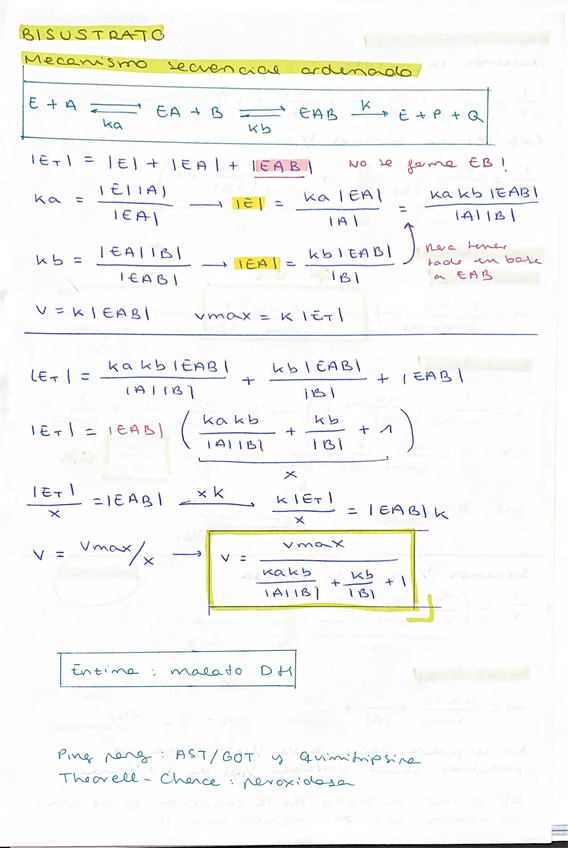 BISUSTRATO
Mecanismo secuencial ordenado
E + A ⇌ EA + B ⇌ EAB → E + P + Q
ka kb k
|ET| = |E| + |EA| + |EAB| No se forma EB!
ka = |E||A| / |EA| → |E| = ka |EA| / |A| = ka kb |EAB| / |A||B|
kb = |EA||B| / |EAB| → |EA| = kb |EAB| / |B| para tener todo en base a EAB
V = k |EAB| vmax = k |ET|
|ET| = ka kb |EAB| / |A||B| + kb |EAB| / |B| + |EAB|
|ET| = |EAB| ( ka kb / |A||B| + kb / |B| + 1 )
x
|ET| / x = |EAB| xk → k |ET| / x = |EAB| k
V = Vmax/x → V = vmax / ka kb / |A||B| + kb / |B| + 1
Entima : malato DH
Ping pong : AST/GOT y Quimitripsina
Theorell - Chance : peroxidasa